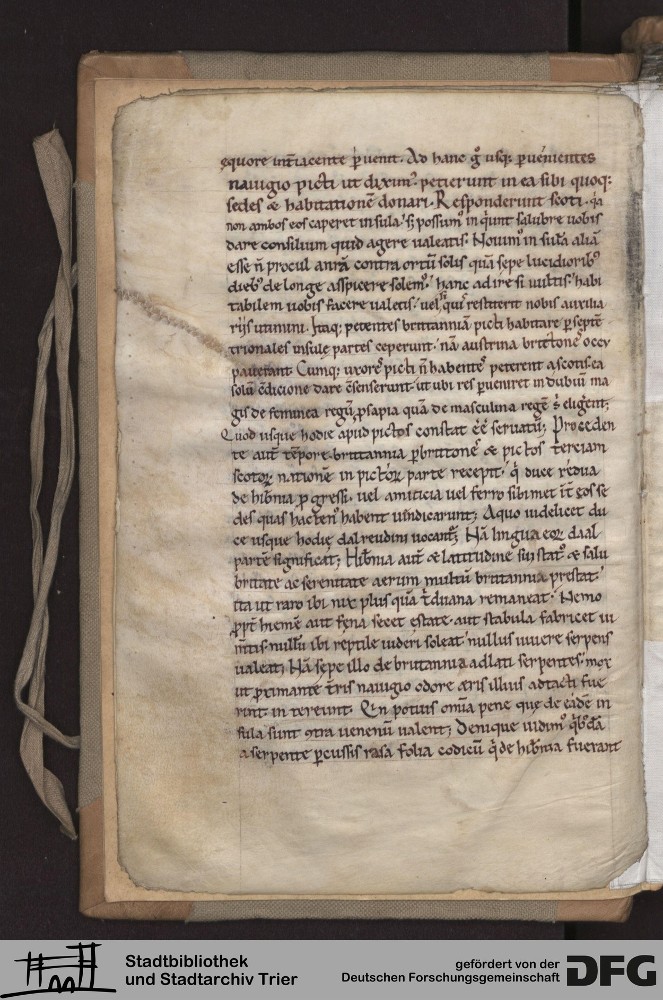 ęquore int̄iacente ꝑuenit. Ad hanc g̊ usq; ꝑuenientes
nauigio picti ut dixim᷒ petierunt in ea sibi quoq;
sedes & habitationē donari. Responderunt scoti. q̇a
non ambos eos caperet insula. sꝫ possum᷒ inq̇unt salubre uobis
dare consilium quid agere ualeatis. Nouim᷒ insulā aliā
esse n̄ procul a nr̄a contra ortū solis quā sepe lucidiorib᷒
dieb᷒ de longe asspicere solem᷒. hanc adire si uultis. habi
tabilem uobis facere ualetis. uel qui restiterit nobis auxilia
rijs utimini. Itaq; petentes brittanniā picti habitare ꝑ septē
trionales insulę partes ceperunt. nā austrina brittone᷒ occu
pauerant. Cumq; uxore᷒ picti n̄ habente᷒ peterent a scotis. ea
solū cōdicione dare cōsenserunt. ut ubi res ꝑueniret in dubiū ma
gis de feminea regū ꝓsapia quā de masculina regē s̄ eligerent;
Quod usque hodie apud pictos constat ēē seruatū; Proceden
te aut̄ tēpore brittannia p̄ brittone᷒ & pictos terciam
scotoꝝ nationē in pictoꝝ parte recepit. q̇ duce reuda
de hib̄nia ꝓgressi. uel amicicia uel ferro sibimet int̄ eos se
des quas hacten᷒ habent uindicarunt; A quo uidelicet du
ce usque hodie dalreudini uocant᷑. Nā lingua eoꝝ daal
partē significat; Hib̄nia aut̄ & latitudine sui stat᷒ & salu
britate ac serenitate aerum multū brittannia prestat.
ita ut raro ibi nix plus quā t̄duana remaneat. Nemo
ꝓpt̄ hiemē aut fena secet estate. aut stabula fabricet iu
m̄tis. nullū ibi reptile uideri soleat. nullus uiuere serpens
ualeat; Nā sepe illo de brittannia adlati serpentes. mox
ut ꝓximante t̄ris nauigio odore aeris illius adtacti fue
rint. intereunt. Qin potius om̄ia pene que de eadē in
sula sunt ꝯtra uenenū ualent; Denique uidim᷒ q̇b᷒dā
a serpente ꝑcussis rasa folia codicū q̇ de hib̄nia fuerant
Stadtbibliothek
und Stadtarchiv Trier
gefördert von der
Deutschen Forschungsgemeinschaft
DFG